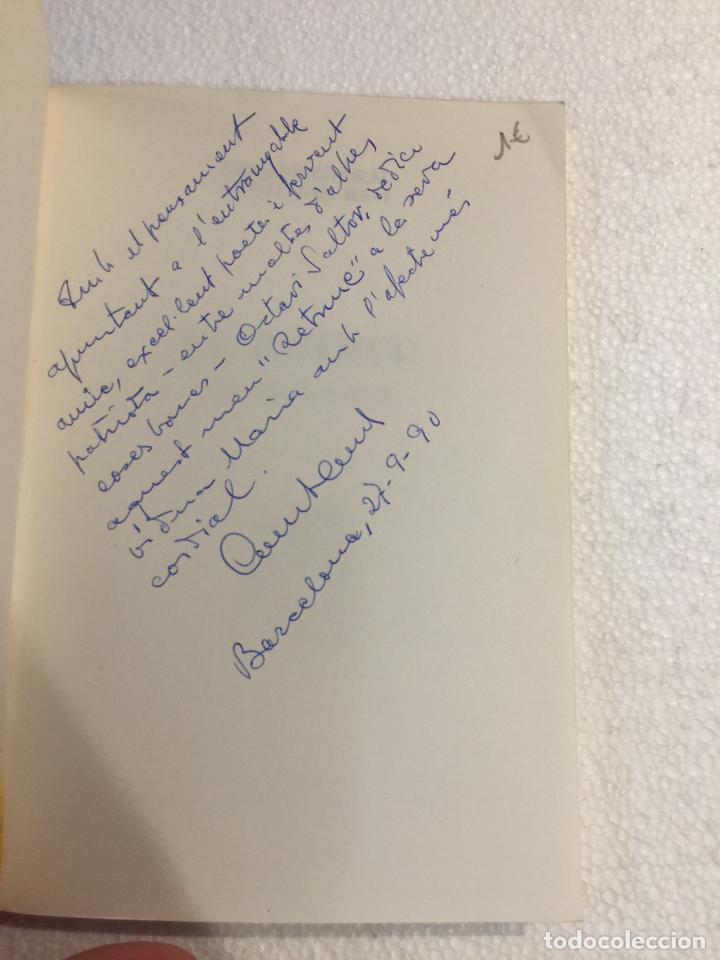 1€
Amb el pensament
apuntant a l'entranyable
amic, excel·lent poeta i fervent
patriota - entre moltes d'altres
coses bones - Octavi Saltor, dedico
aquest meu "Retruc" a la seva
vídua Maria amb l'afecte més
cordial.
Barcelona, 27-9-90
todocoleccion
todocoleccion.net